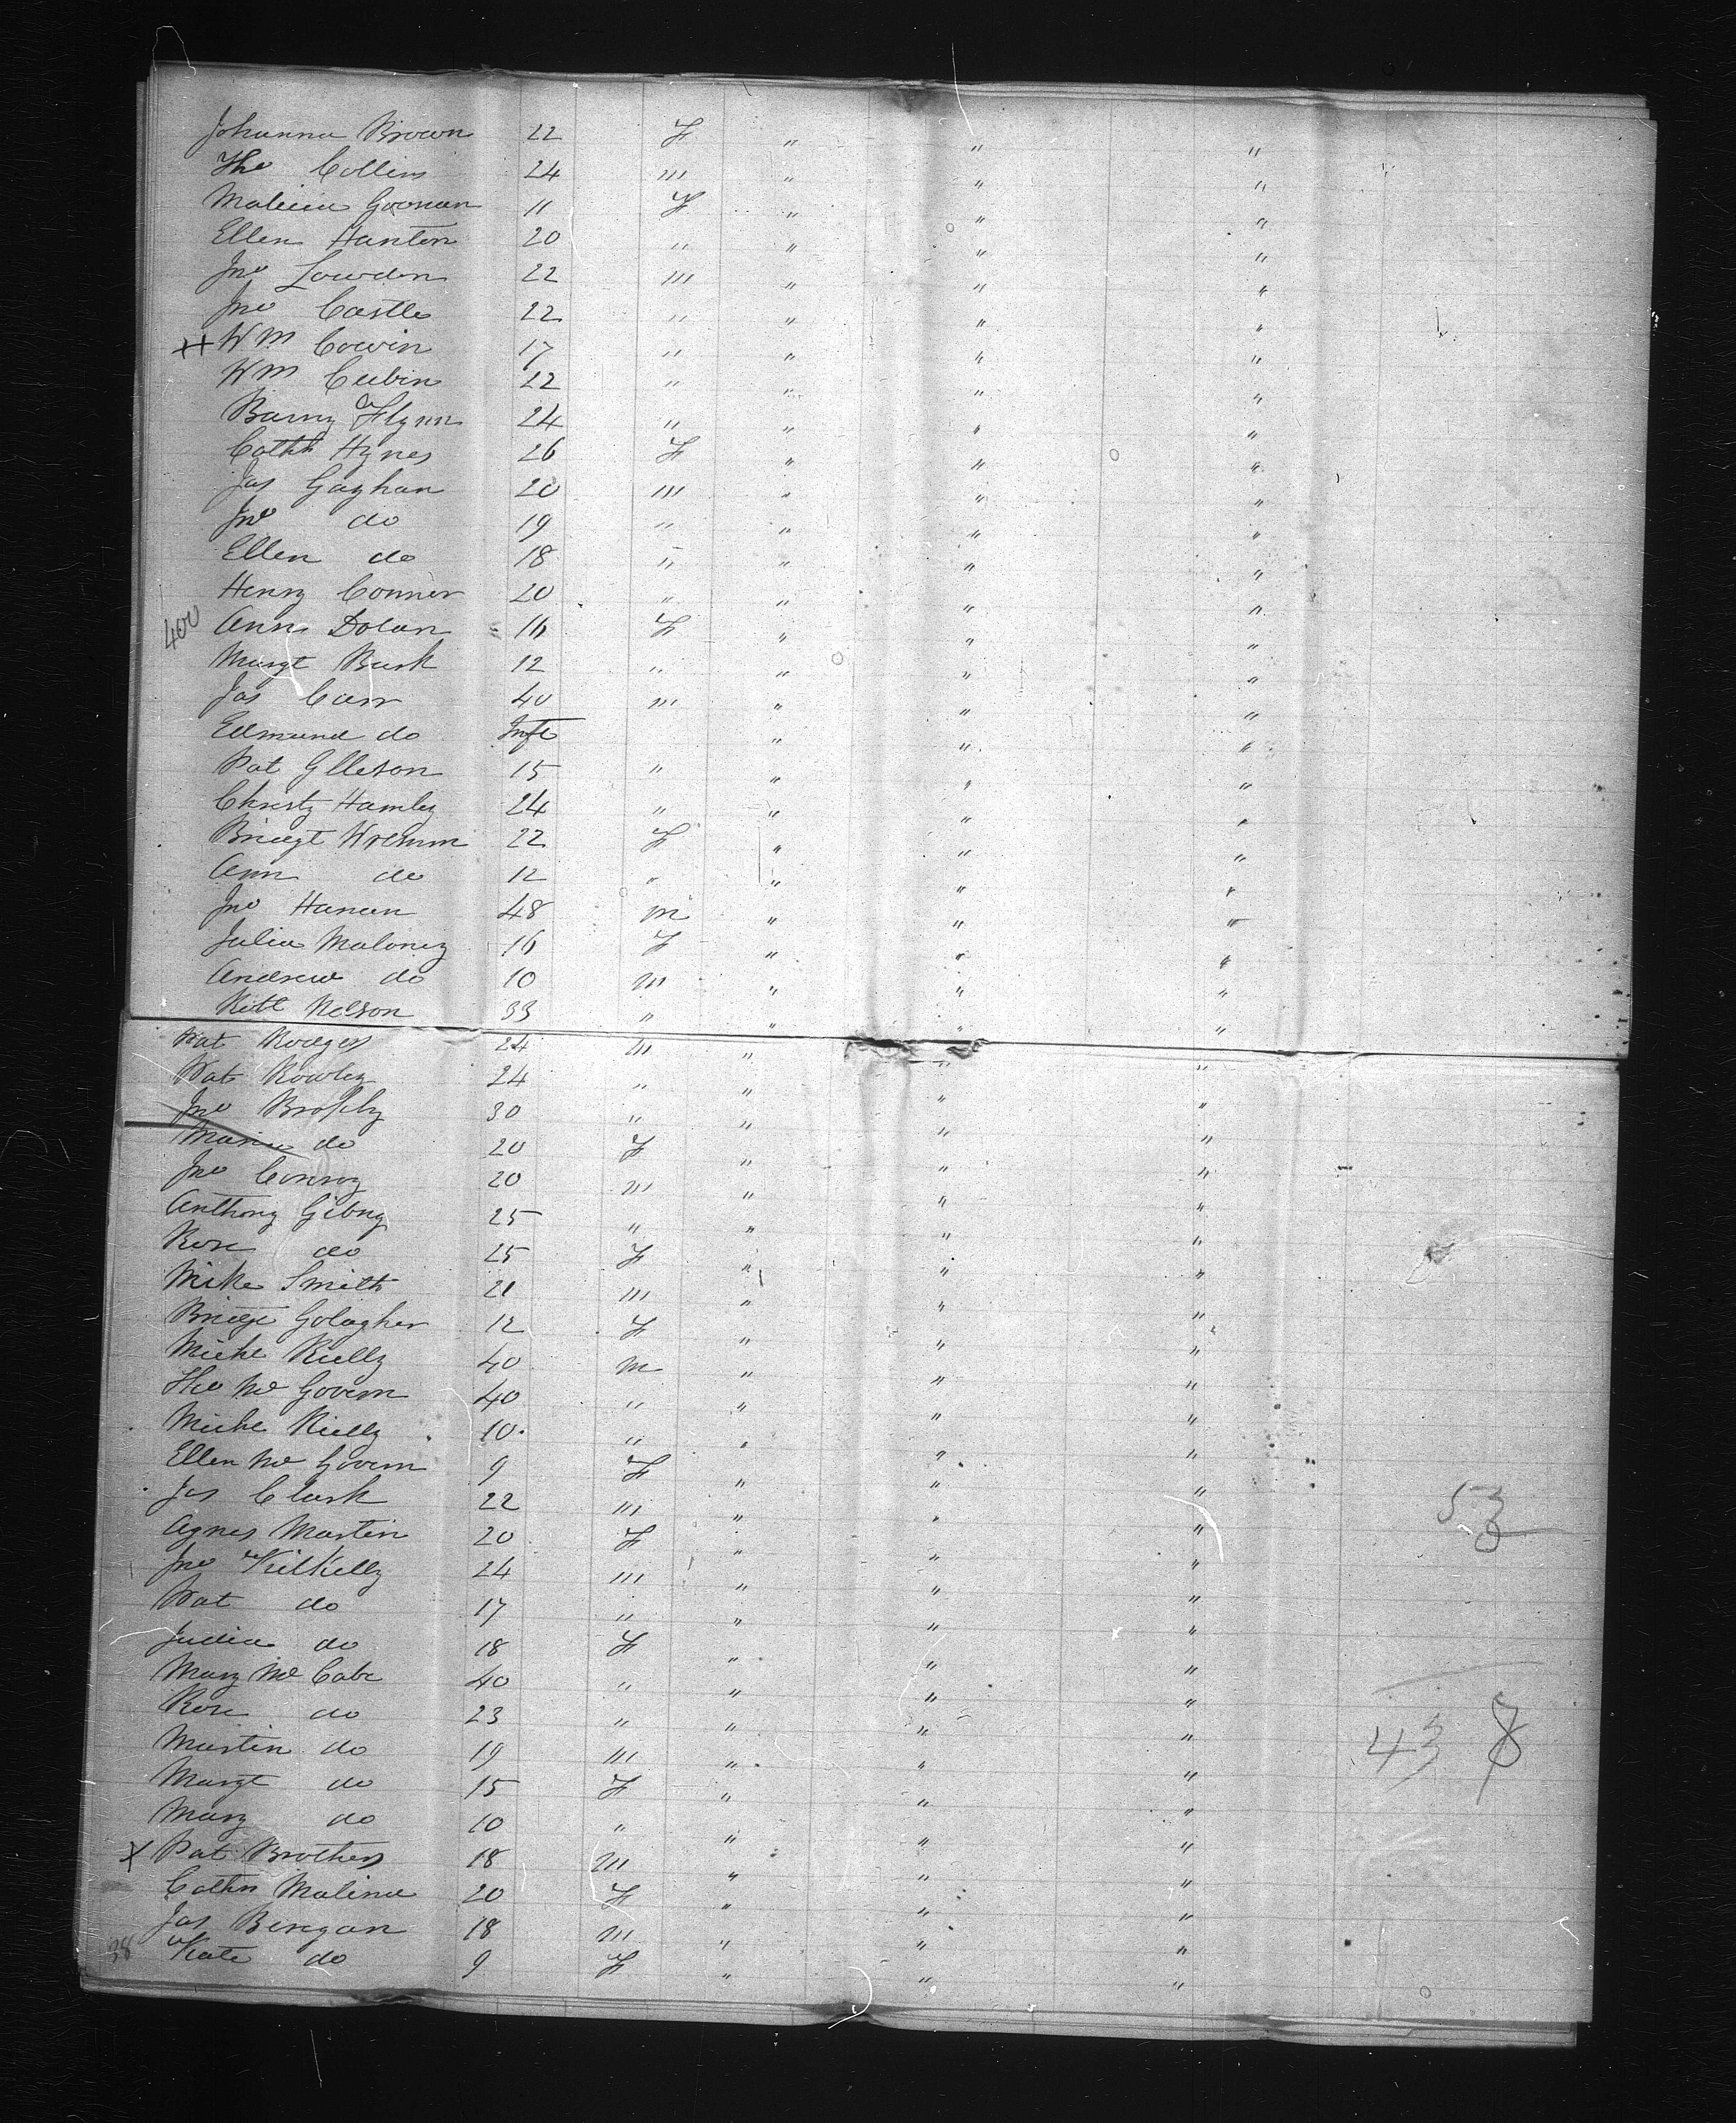 Johanna Brown 22 F " " "
Tho Collins 24 m " " "
Malicia Goonan 11 F " " "
Ellen Hanton 20 " " " "
Jno Lowden 22 m " " "
Jno Castle 22 " " " "
++ Wm Cowin 17 " " " "
Wm Cubin 22 " " " "
Barny Flynn 24 " " " "
Cathe Hynes 26 F " " "
Jas Gaghan 20 m " " "
Jno do 19 " " " "
Ellen do 18 " " " "
Henry Conner 20 " " " "
400 Ann Dolan 16 F " " "
Margt Bark 12 " " " "
Jas Carr 40 m " " "
Edmund do Inft " " "
Pat Glleson 15 " " " "
Christy Hamley 24 " " " "
Bridgt 22 F " " "
Ann do 12 " " " "
Jno Hanan 48 m " " "
Julia Maloney 16 F " " "
Andrew do 10 m " " "
Kitt Nelson 33 " " " "
Pat Rodgers 24 m " " "
Pat Rowley 24 " " " "
Jno Brophy 30 " " " "
Maria do 20 F " " "
Jno Conroy 20 m " " "
Anthony Gibny 25 " " " "
Rose do 25 F " " "
Mike Smith 21 m " " "
Bridgt Golagher 12 F " " "
Michl Rielly 40 m " " "
Tho Mc Govern 40 " " " "
Michl Rielly 10 " " " "
Ellen Mc Govern 9 F " " "
Jas Clark 22 m " " " 53
Agnes Martin 20 F " " "
Jno Kilkelly 24 m " " "
Pat do 17 " " " "
Judia do 18 F " " "
Mary Mc Cabe 40 " " " "
Rose do 23 " " " "
Martin do 19 m " " " 43 8
Margt do 15 F " " "
Mary do 10 " " " "
x Pat Brothers 18 m " " "
Cathn Malina 20 F " " "
Jas Bengan 18 m " " "
38 Kate do 9 F " " "